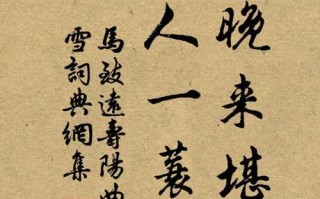 晚来堪
人一蓑
馬致遠壽陽曲
雪詞典網集